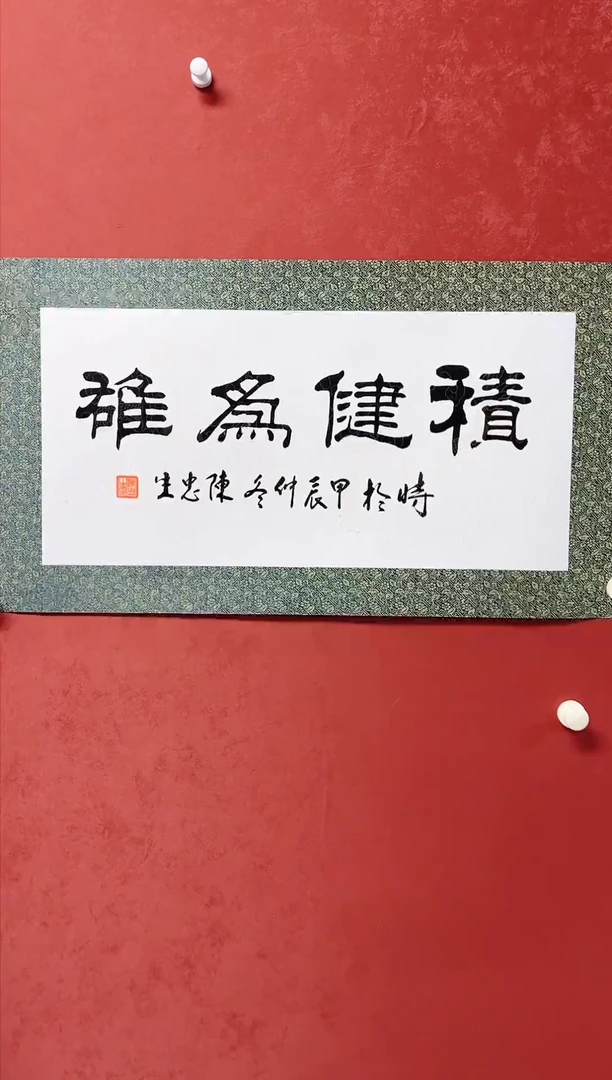 積健為雄
時於甲辰仲冬陳忠生